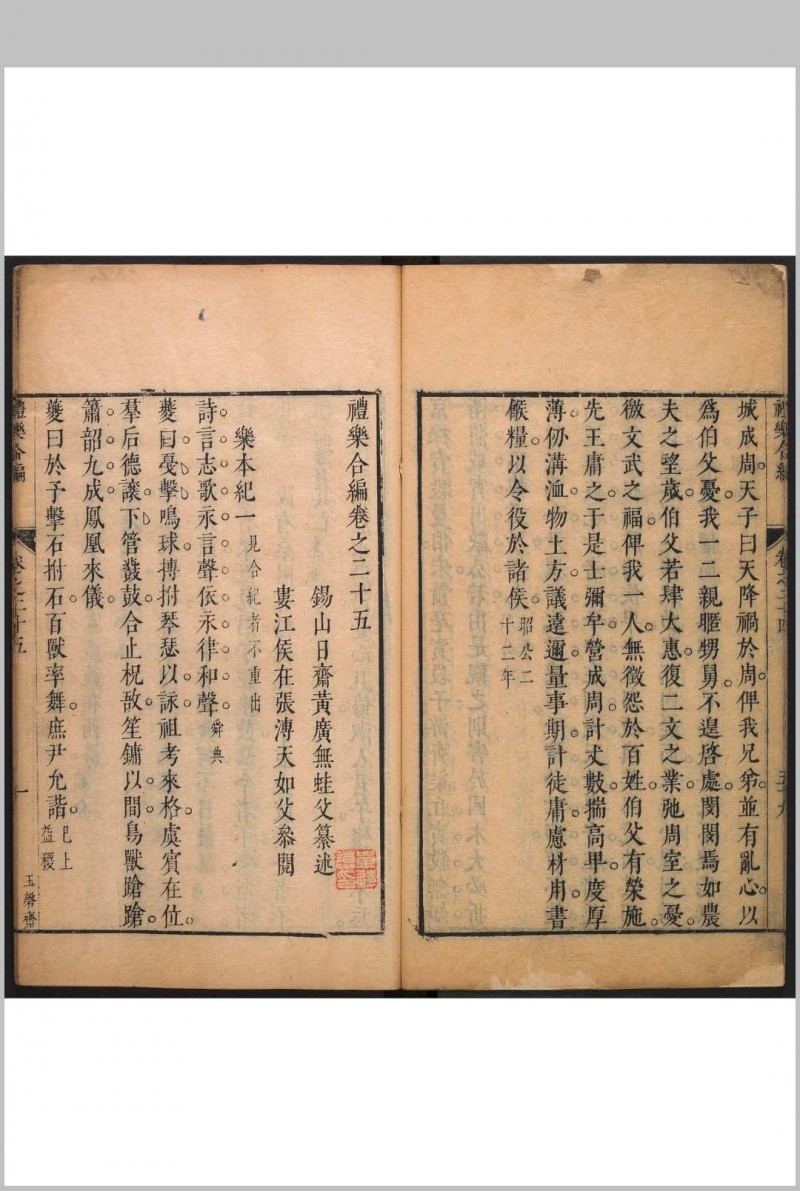 禮樂合編
卷之二十四
五十九
城成周天子曰天降禍於周俾我兄弟並有亂心以
爲伯父憂我一二親暱甥舅不遑啓處閔閔焉如農
夫之望歲伯父若肆大惠復二文之業弛周室之憂
徼文武之福俾我一人無徵怨於百姓伯父有榮施
先王庸之于是士彌牟營成周計丈數揣高卑度厚
薄仞溝洫物土方議遠邇量事期計徒庸慮材用書
餱糧以令役於諸侯昭公二
十二年
禮樂合編卷之二十五
錫山日齋黃廣無蛙父纂述
婁江侯在張溥天如父叅閱
樂本紀一見合紀者不重出
詩言志歌永言聲依永律和聲舜典
夔曰戛擊鳴球搏拊琴瑟以詠祖考來格虞賓在位
羣后德讓下管鼗鼓合止柷敔笙鏞以間鳥獸蹌蹌
簫韶九成鳳凰來儀
夔曰於予擊石拊石百獸率舞庶尹允諧已上
益稷
禮樂合編
卷之二十五
一
玉磬齋